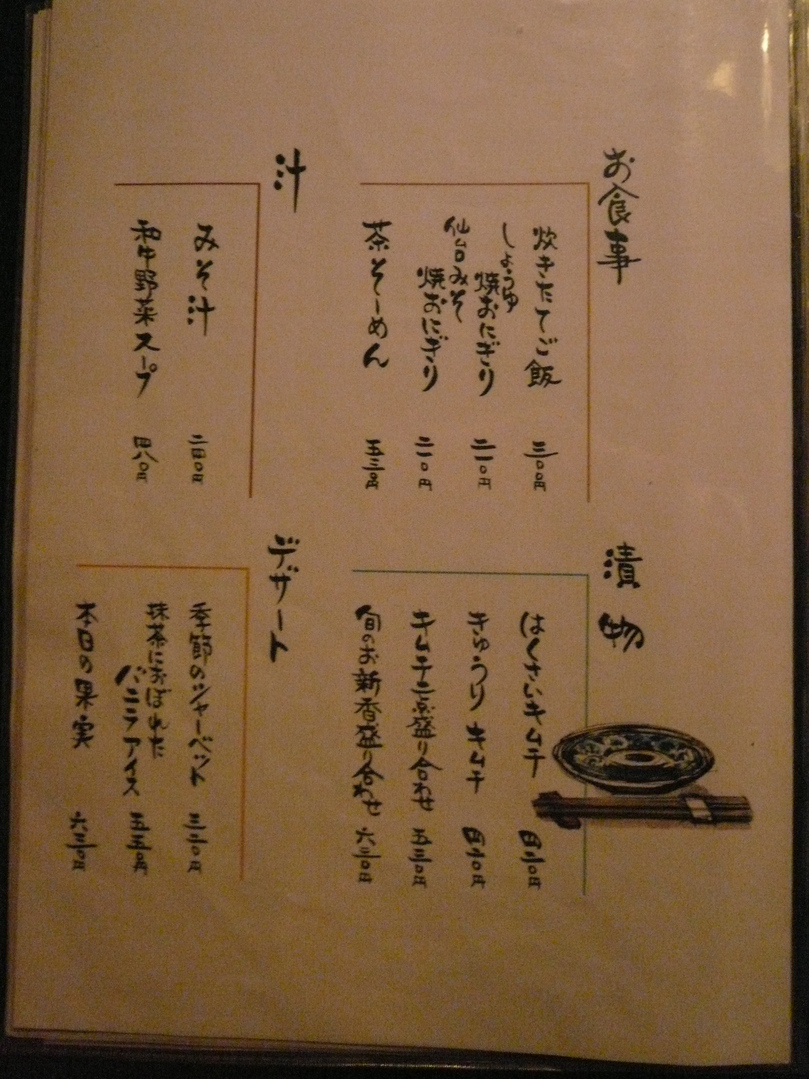 お食事
炊きたてご飯 三〇〇円
しょうゆ
焼おにぎり 二一〇円
仙台みそ
焼おにぎり 二一〇円
茶そーめん 五三〇円
汁
みそ汁
和牛野菜スープ 四八〇円
漬物
はくさいキムチ
きゅうりキムチ
キムチ二点盛り合わせ 五三〇円
旬のお新香盛り合わせ 六三〇円
デザート
季節のシャーベット 三二〇円
抹茶におぼれた
バニラアイス
本日の果実 六三〇円